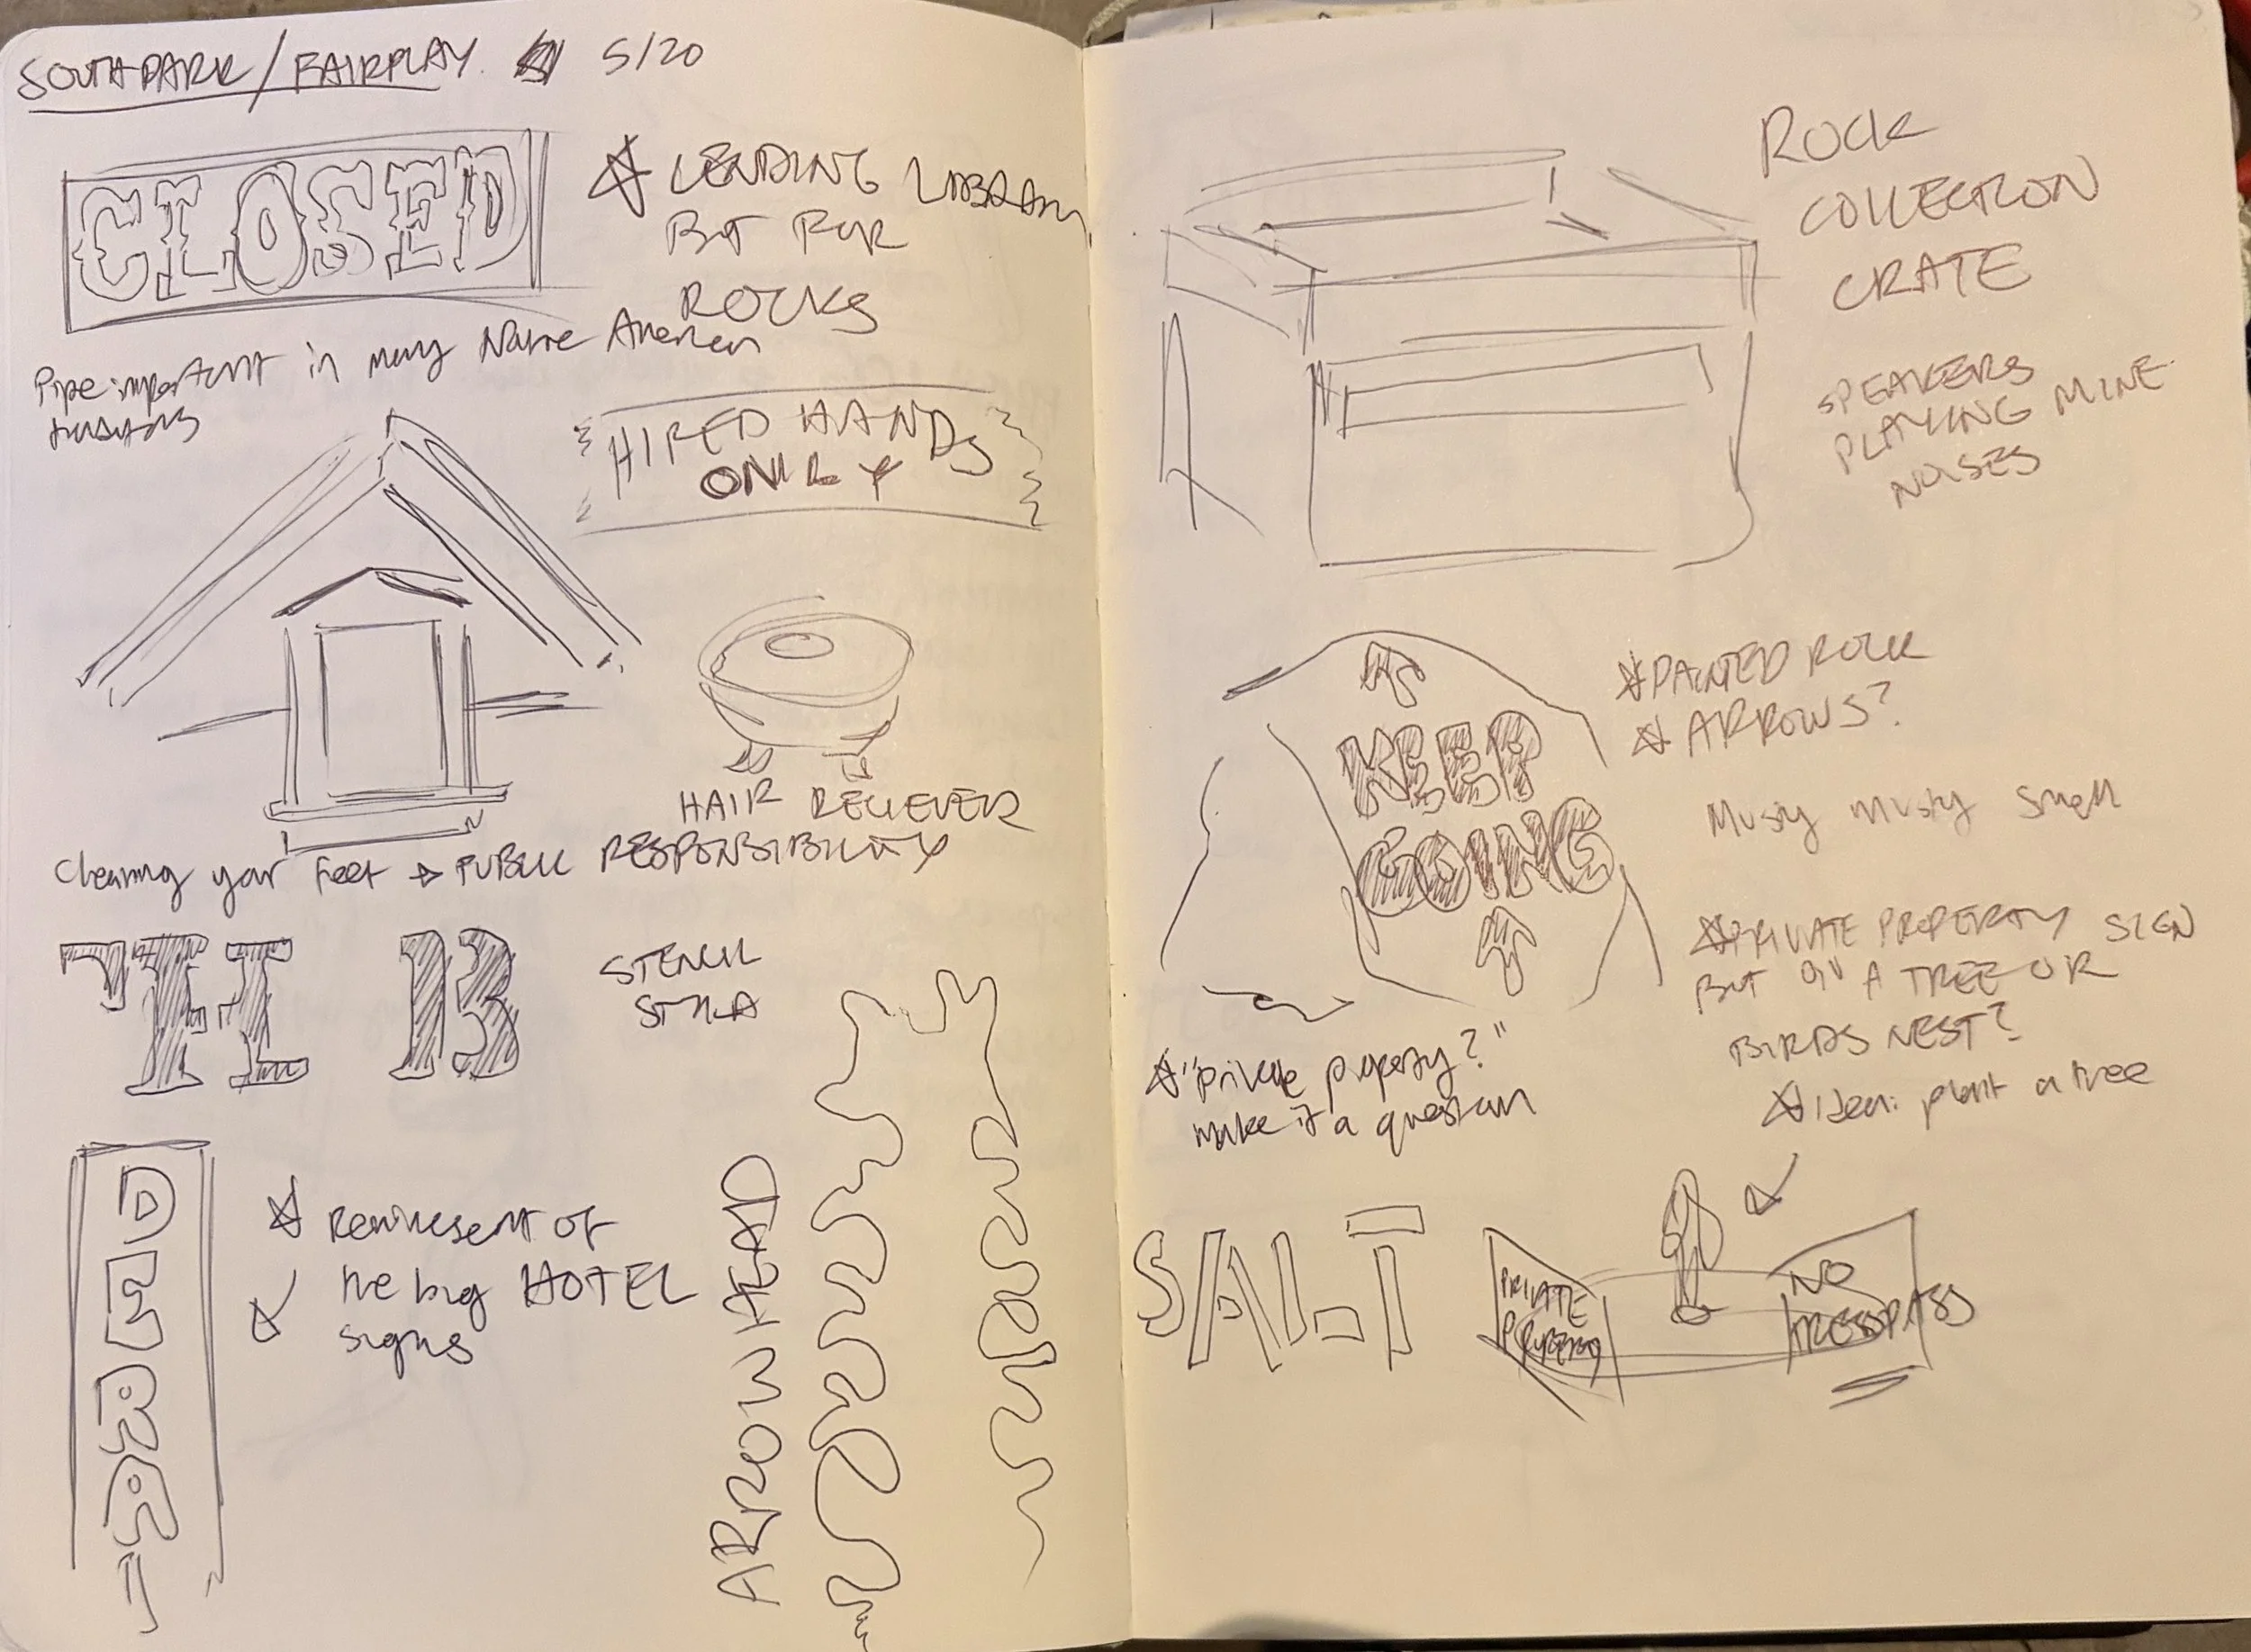 SOUTH PARK / FAIRPLAY 5/20
CLOSED
LENDING LIBRARY
BUT FOR
ROCKS
Pipe important in many Native American
HIRED HANDS
ONLY
HAIR RELIEVER
Cleaning your feet → PUBLIC RESPONSIBILITY
13
STENCIL
STYLE
Reminisent of
the big HOTEL
signs
ARROWHEAD
ROCK
COLLECTION
CRATE
SPEAKERS
PLAYING MINE
NOISES
KEEP
GOING
PAINTED ROCK
ARROWS?
Musty musty smell
PRIVATE PROPERTY SIGN
BUT ON A TREE OR
BIRDS NEST?
Idea: plant a tree
"private property?"
make it a question
SALT
PRIVATE
PROPERTY
NO
TRESSPASS